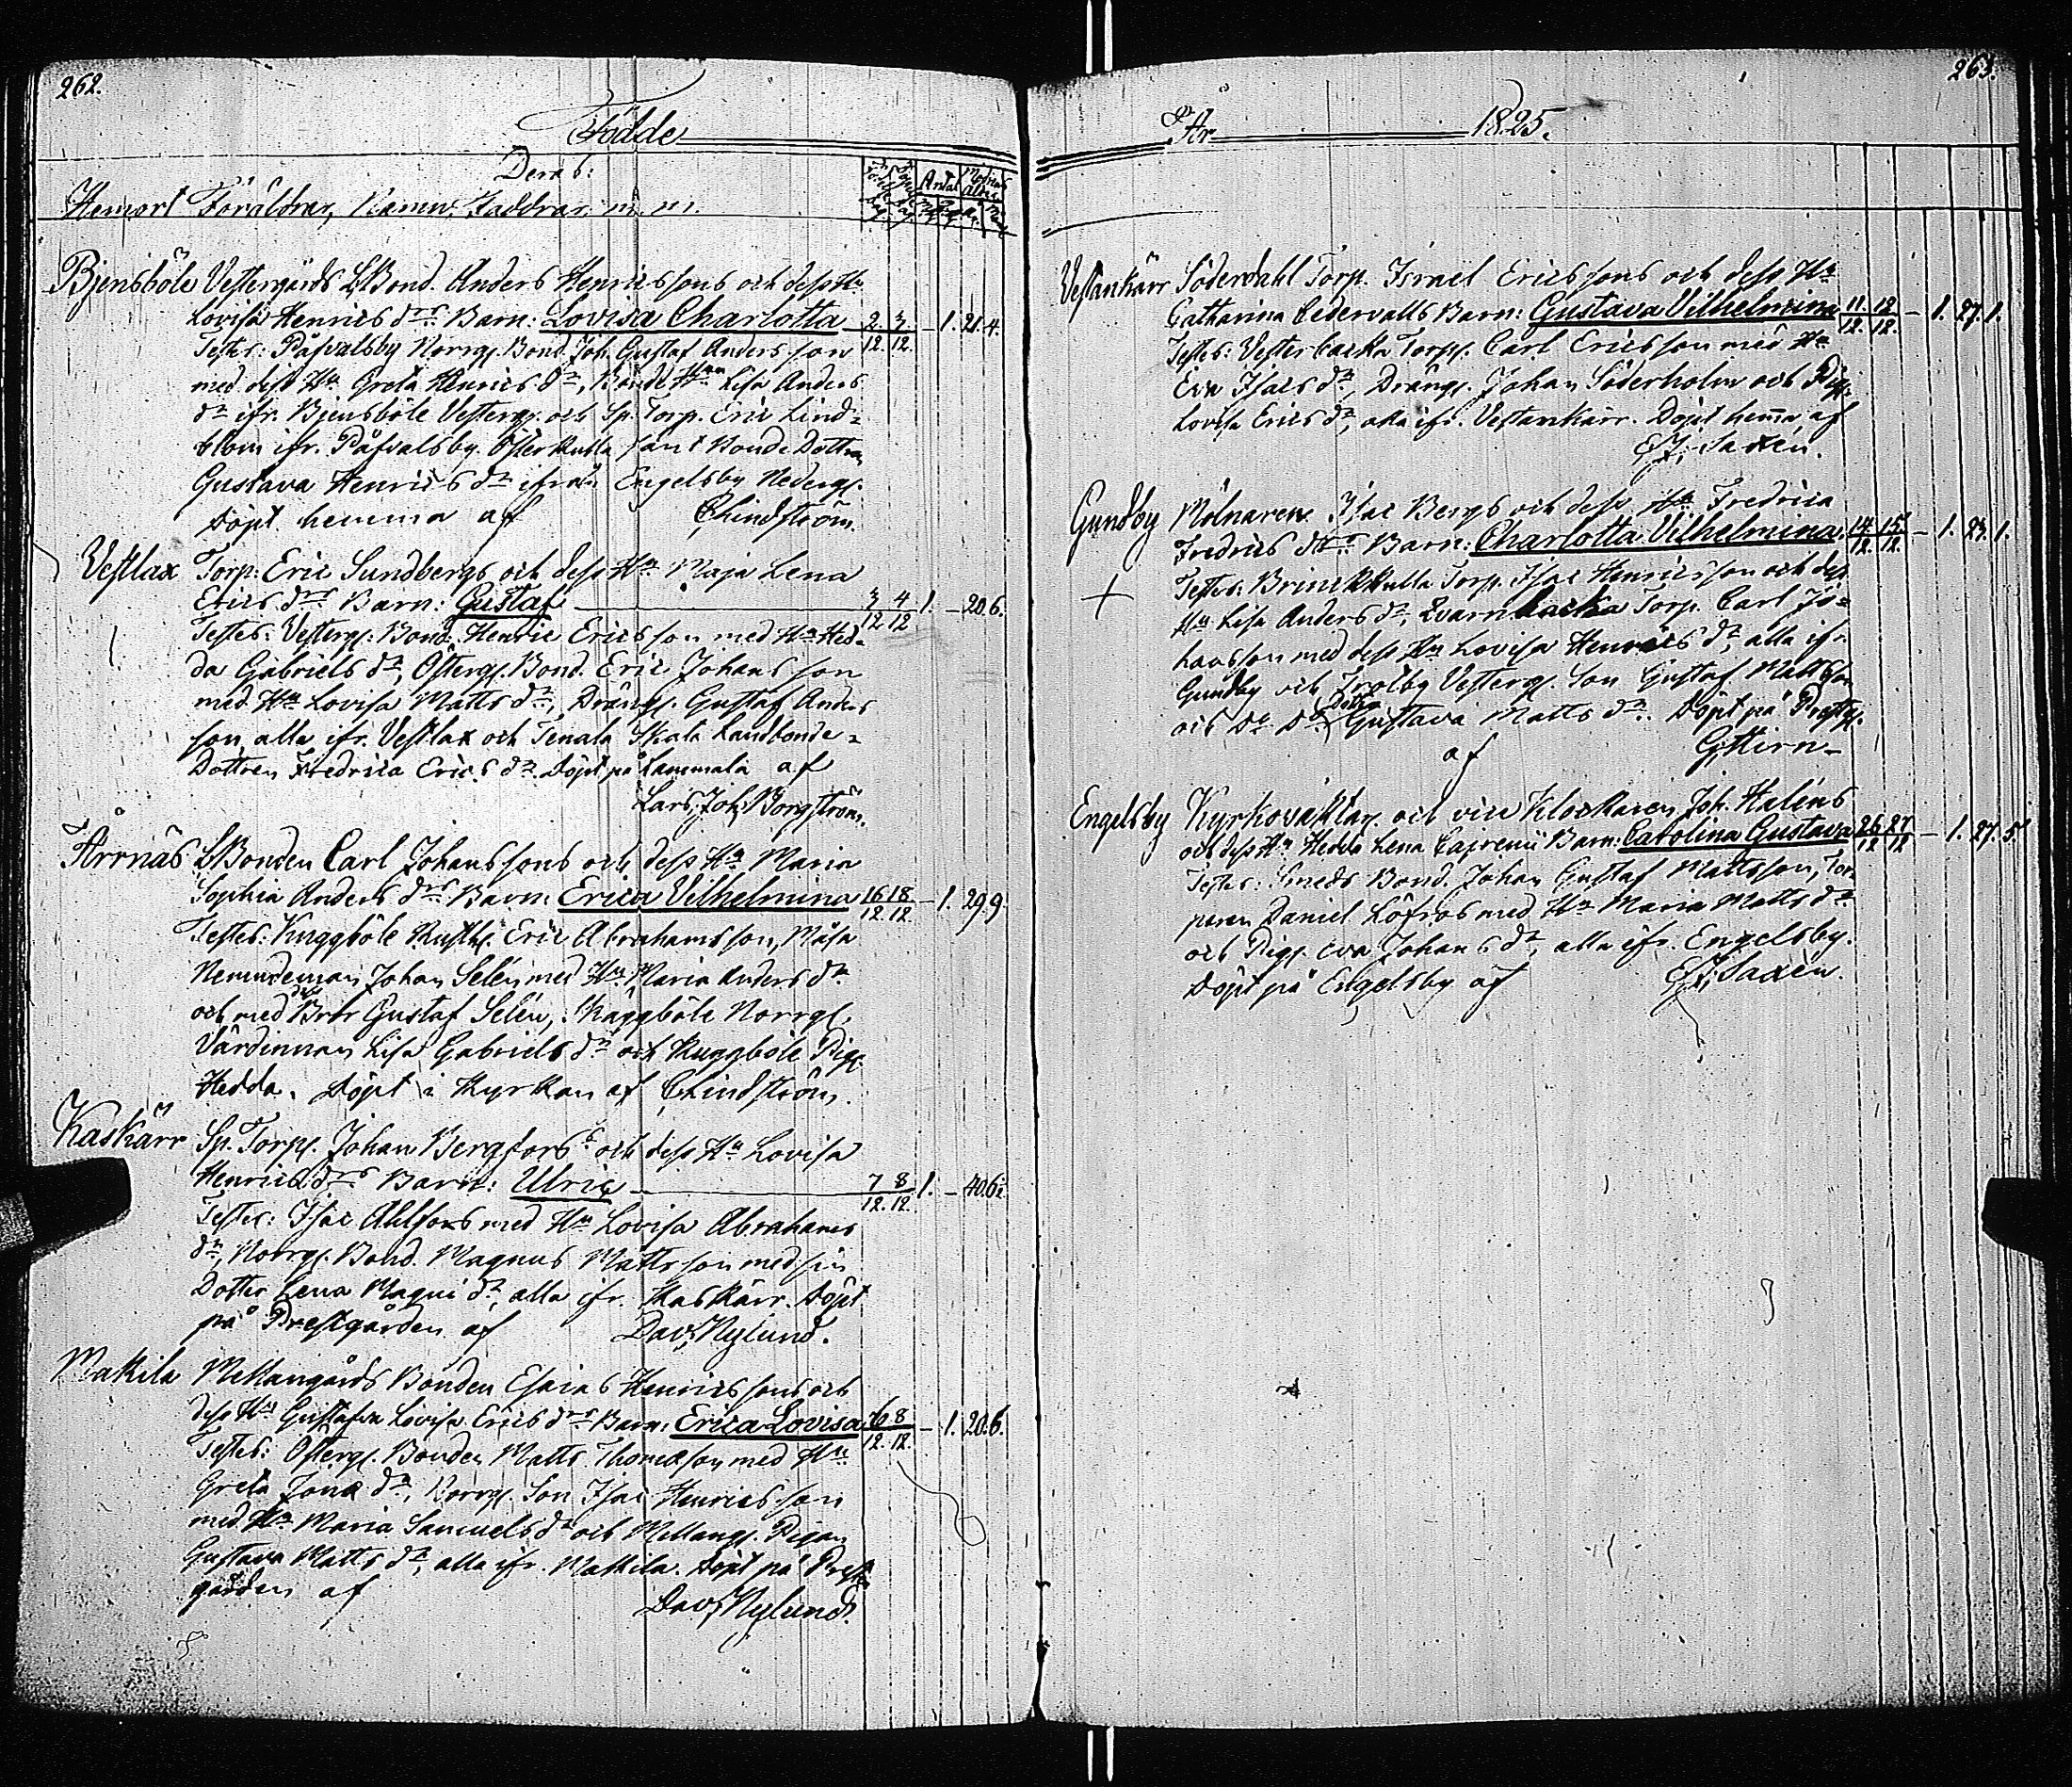 262.
Födde
Deras:
Hemort Föräldrar, Namn, Faddrar m. m.
Antal
Bjensböle Vestergårds LBond. Anders Henricssons och dess Hu
Lovisa Henrics drs Barn: Lovisa Charlotta 2/12. 3/12. – 1. 21.4.
Testes: Påfvalsby Norrg. Bond. Joh. Gustaf Andersson
med dess Hu Greta Henrics dr, Bonde Hun Lisa Anders
dr ifr. Bjensböle Vesterg. och Sp. Torp. Eric Lind-
blom ifr. Påfvalsby Österkulla samt Bonde Dottren
Gustava Henrics dr ifrån Engelsby Nederg.
döpt hemma af CLindström.
Vestlax Torp. Eric Sundbergs och dess Hu Maja Lena
Erics drs Barn: Gustaf 3/12 4/12 1. – 20.6.
Testes: Vesterg. Bond. Henric Ericsson med Hu Hed-
da Gabriels dr, Österg. Bond. Eric Johansson
med Hu Lovisa Matts dr, Dräng. Gustaf Anders
son alla ifr. Vestlax och Tenala Skata Landbonde-
Dottren Fredrica Erics dr. Döpt på Lammala af
Lars Joh. Borgström.
Årrnäs LBonden Carl Johanssons och dess Hu Maria
Sophia Anders drs Barn: Erica Vilhelmina 16/12 18/12. – 1. 29.9.
Testes: Kuggböle Rusth. Eric Abrahamsson, Måsa
Nemndeman Johan Selén med Hu Maria Anders dr
och med dess Bror Gustaf Selén, Skäggböle Norrg.
Värdinnan Lisa Gabriels dr och Kuggböle Pig.
Hedda. Döpt i Kyrkan af CLindström.
Kaskärr Sp. Torp. Johan Bergfors och dess Hu Lovisa
Henrics drs Barn: Ulric 7/12. 8/12. 1. – 40.6.
Testes: Isac Ahlfors med Hu Lovisa Abrahams
dr, Norrg. Bond. Magnus Mattsson med sin
Dotter Lena Magni dr, alla ifr. Kaskärr. Döpt
på Prestgården af Dav. Nylund.
Makila Mellangårds Bonden Esaias Henricssons och
dess Hu Gustafva Lovisa Erics drs Barn: Erica Lovisa 6/12. 8/12. – 1. 20.6.
Testes: Österg. Bonden Matts Thomasson med Hu
Greta Jonæ dr, Norrg. Son Isac Henricsson
med Hu Maria Samuels dr och Mellang. Pigan
Gustava Matts dr, alla ifr. Makila. Döpt på Prest-
gården af Dav. Nylund.
263.
År 1825.
Vestankärr Söderdahl Torp. Israel Ericssons och dess Hu
Catharina Cedervalls Barn: Gustava Vilhelmina 11/12. 12/12. – 1. 27.1.
Testes: Vesterbacka Torp. Carl Ericsson med Hu
Eva Isacs dr, Dräng. Johan Söderholm och Pig.
Lovisa Erics dr, alla ifr. Vestankärr. Döpt hema af
Saxén.
Gundby Mölnaren Isac Bergs och dess Hu Fredrica
Fredrics drs Barn: Charlotta Vilhelmina 14/12. 15/12. – 1. 23.1.
Testes: Brinckkulla Torp. Isac Henricsson och dess
Hu Lisa Anders dr, Qvarnbacka Torp. Carl Jo-
hansson med dess Hu Lovisa Henrics dr, alla ifr.
Gundby och Trotby Vesterg. Son Gustaf Mattsson
och Do Do Dotter Gustava Matts dr. Döpt på Prestg.
af G. Hirn
Engelsby Kyrkovaktar. och vice Klockaren Joh. Haléns
och dess Hu Hedda Lena Cajrenii Barn: Carolina Gustava 26/12 27/12 – 1. 27.5.
Testes: Smeds Bond. Johan Gustaf Mattsson, Tor-
paren Daniel Löfros med Hu Maria Matts dr
och Pig. Eva Johans dr, alla ifr. Engelsby.
Döpt på Engelsby af Saxén.